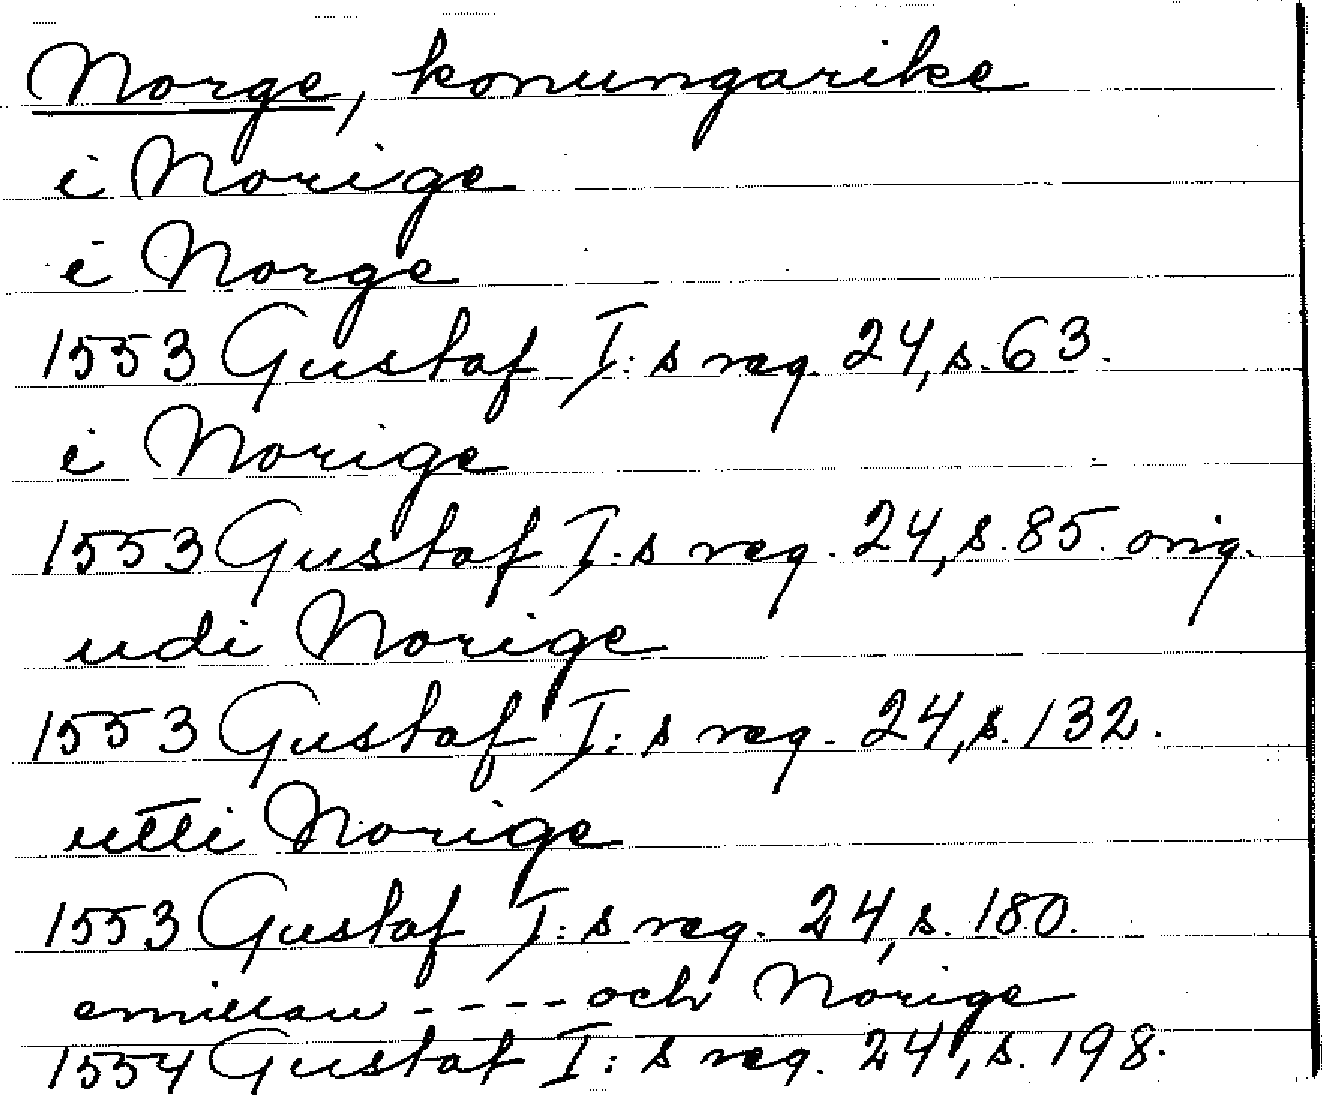 Norge, konungarike
i Norige
i Norge
1553 Gustaf I:s reg. 24, s. 63.
i Norige
1553 Gustaf I:s reg. 24, s. 85. orig.
udi Norige
1553 Gustaf I:s reg. 24, s. 132.
utti Norige
1553 Gustaf I:s reg. 24, s. 180.
emillan - - - - och Norige
1554 Gustaf I:s reg. 24, s. 198.